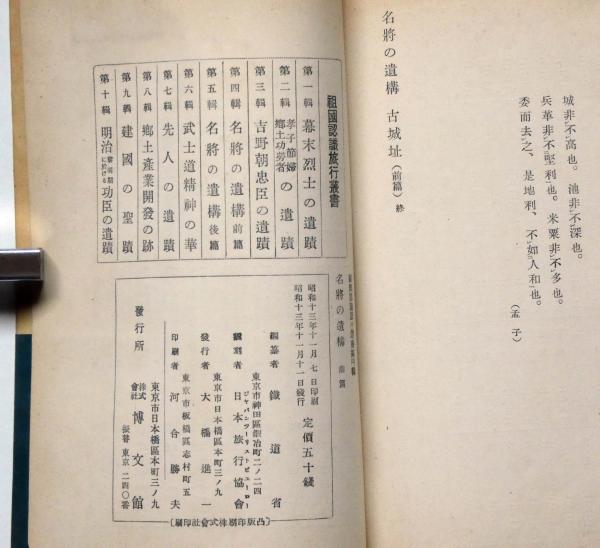 城非不高也。池非不深也。
兵革非不堅利也。米粟非不多也。
委而去之、是地利、不如人和也。
（孟子）
名將の遺構 古城址（前篇）終
祖國認識旅行叢書
第一輯 幕末烈士の遺蹟
第二輯 孝子節婦鄕土功勞者の遺蹟
第三輯 吉野朝忠臣の遺蹟
第四輯 名將の遺構 前篇
第五輯 名將の遺構 後篇
第六輯 武士道精神の華
第七輯 先人の遺蹟
第八輯 鄕土產業開發の跡
第九輯 建國の聖蹟
第十輯 明治に於ける功臣の遺蹟
名將の遺構 前篇
昭和十三年十一月七日印刷
昭和十三年十一月十一日發行
定價五十錢
編纂者 鐵道省
東京市神田區鍛冶町二ノ二四
ジャパンツーリストビューロー
日本旅行協會
東京市日本橋區本町三ノ九
發行者 大橋進一
東京市板橋區志村町五
印刷者 河合勝夫
東京市日本橋區本町三ノ九
發行所 株式會社 博文館
振替東京二四〇番
〔凸版印刷株式會社印刷〕